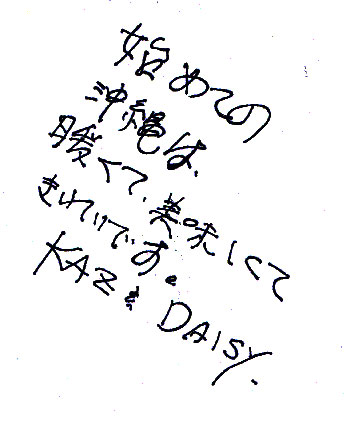 始めての
沖縄は、
暖くて、美味しくて
きれいです。
KAZ & DAISY.